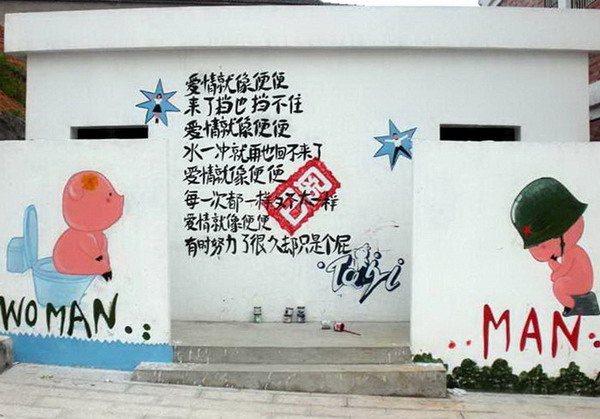 爱情就像便便
来了挡也挡不住
爱情就像便便
水一冲就再也回不来了
爱情就像便便
每一次都一样又不大一样
爱情就像便便
有时努力了很久却只是个屁
WOMAN..:
MAN..: